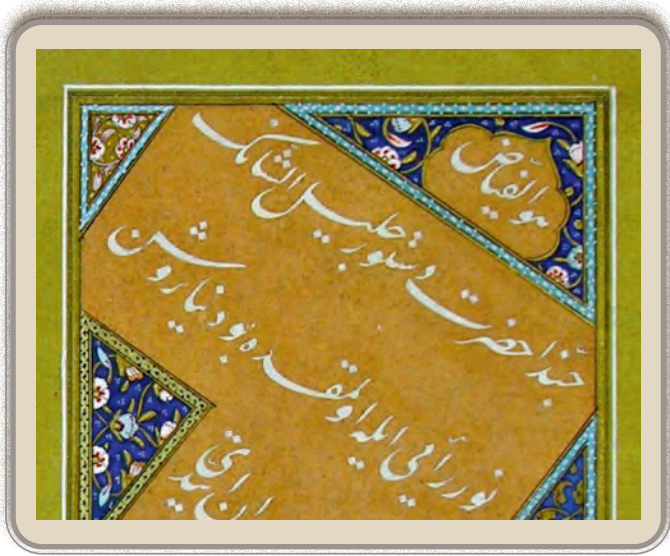 هو الفیّاض
حبّذا حضرت دستور جلیل الشّانک
نور رأیی ایله اولمقده بو دنیا روشن